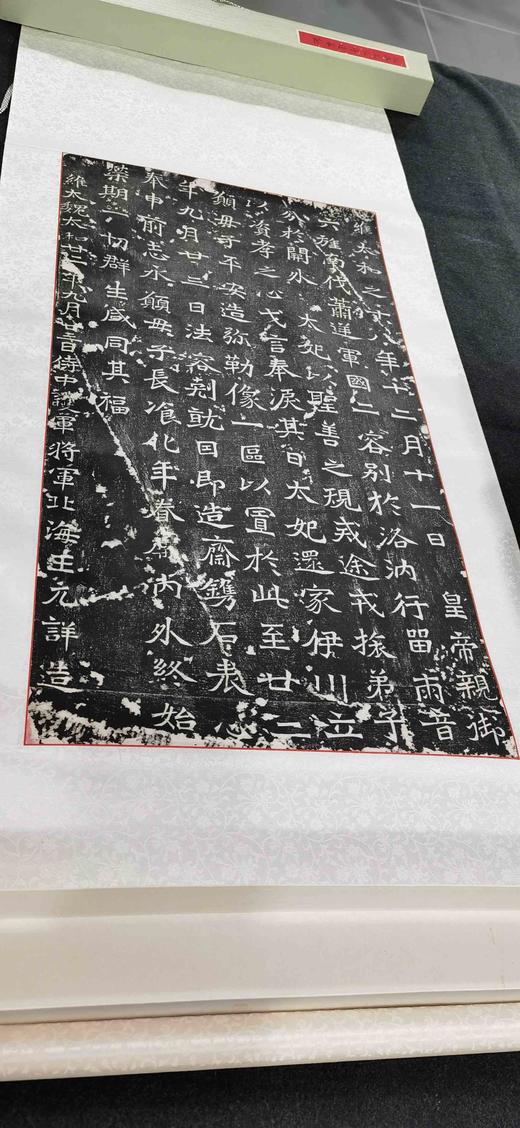 維太和之十八年十二月十一日 皇帝親御
六旌南伐蕭逆軍國二容別於洛汭行留兩音
分於閫外 太妃以聖善之規戒途戎旅弟子
以資孝之心戈言奉淚其日太妃還家伊川立
願母子平安造弥勒像一區以置於此至廿二
年九月廿三日法容剋就因即造齋鐫石表心
奉申前志永願母子長飡化年眷屬內外終始
榮期一切群生咸同其福
維大魏太和廿二年九月廿三日侍中護軍將軍北海王元詳造